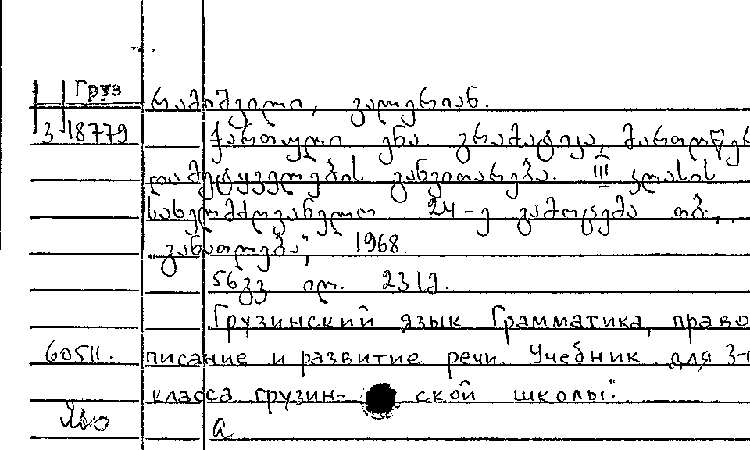 Груз
რამიშვილი, ვალერიან.
3 18779
ქართული ენა. გრამატიკა, მართლწერ
და მეტყველების განვითარება. III კლასის
სახელმძღვანელო 24-ე გამოცემა თბ.,
„განათლება", 1968
56გვ ილ. 23
Грузинский язык Грамматика, право
60511. писание и развитие речи. Учебник для 3-
класса грузин- ской школы".
а